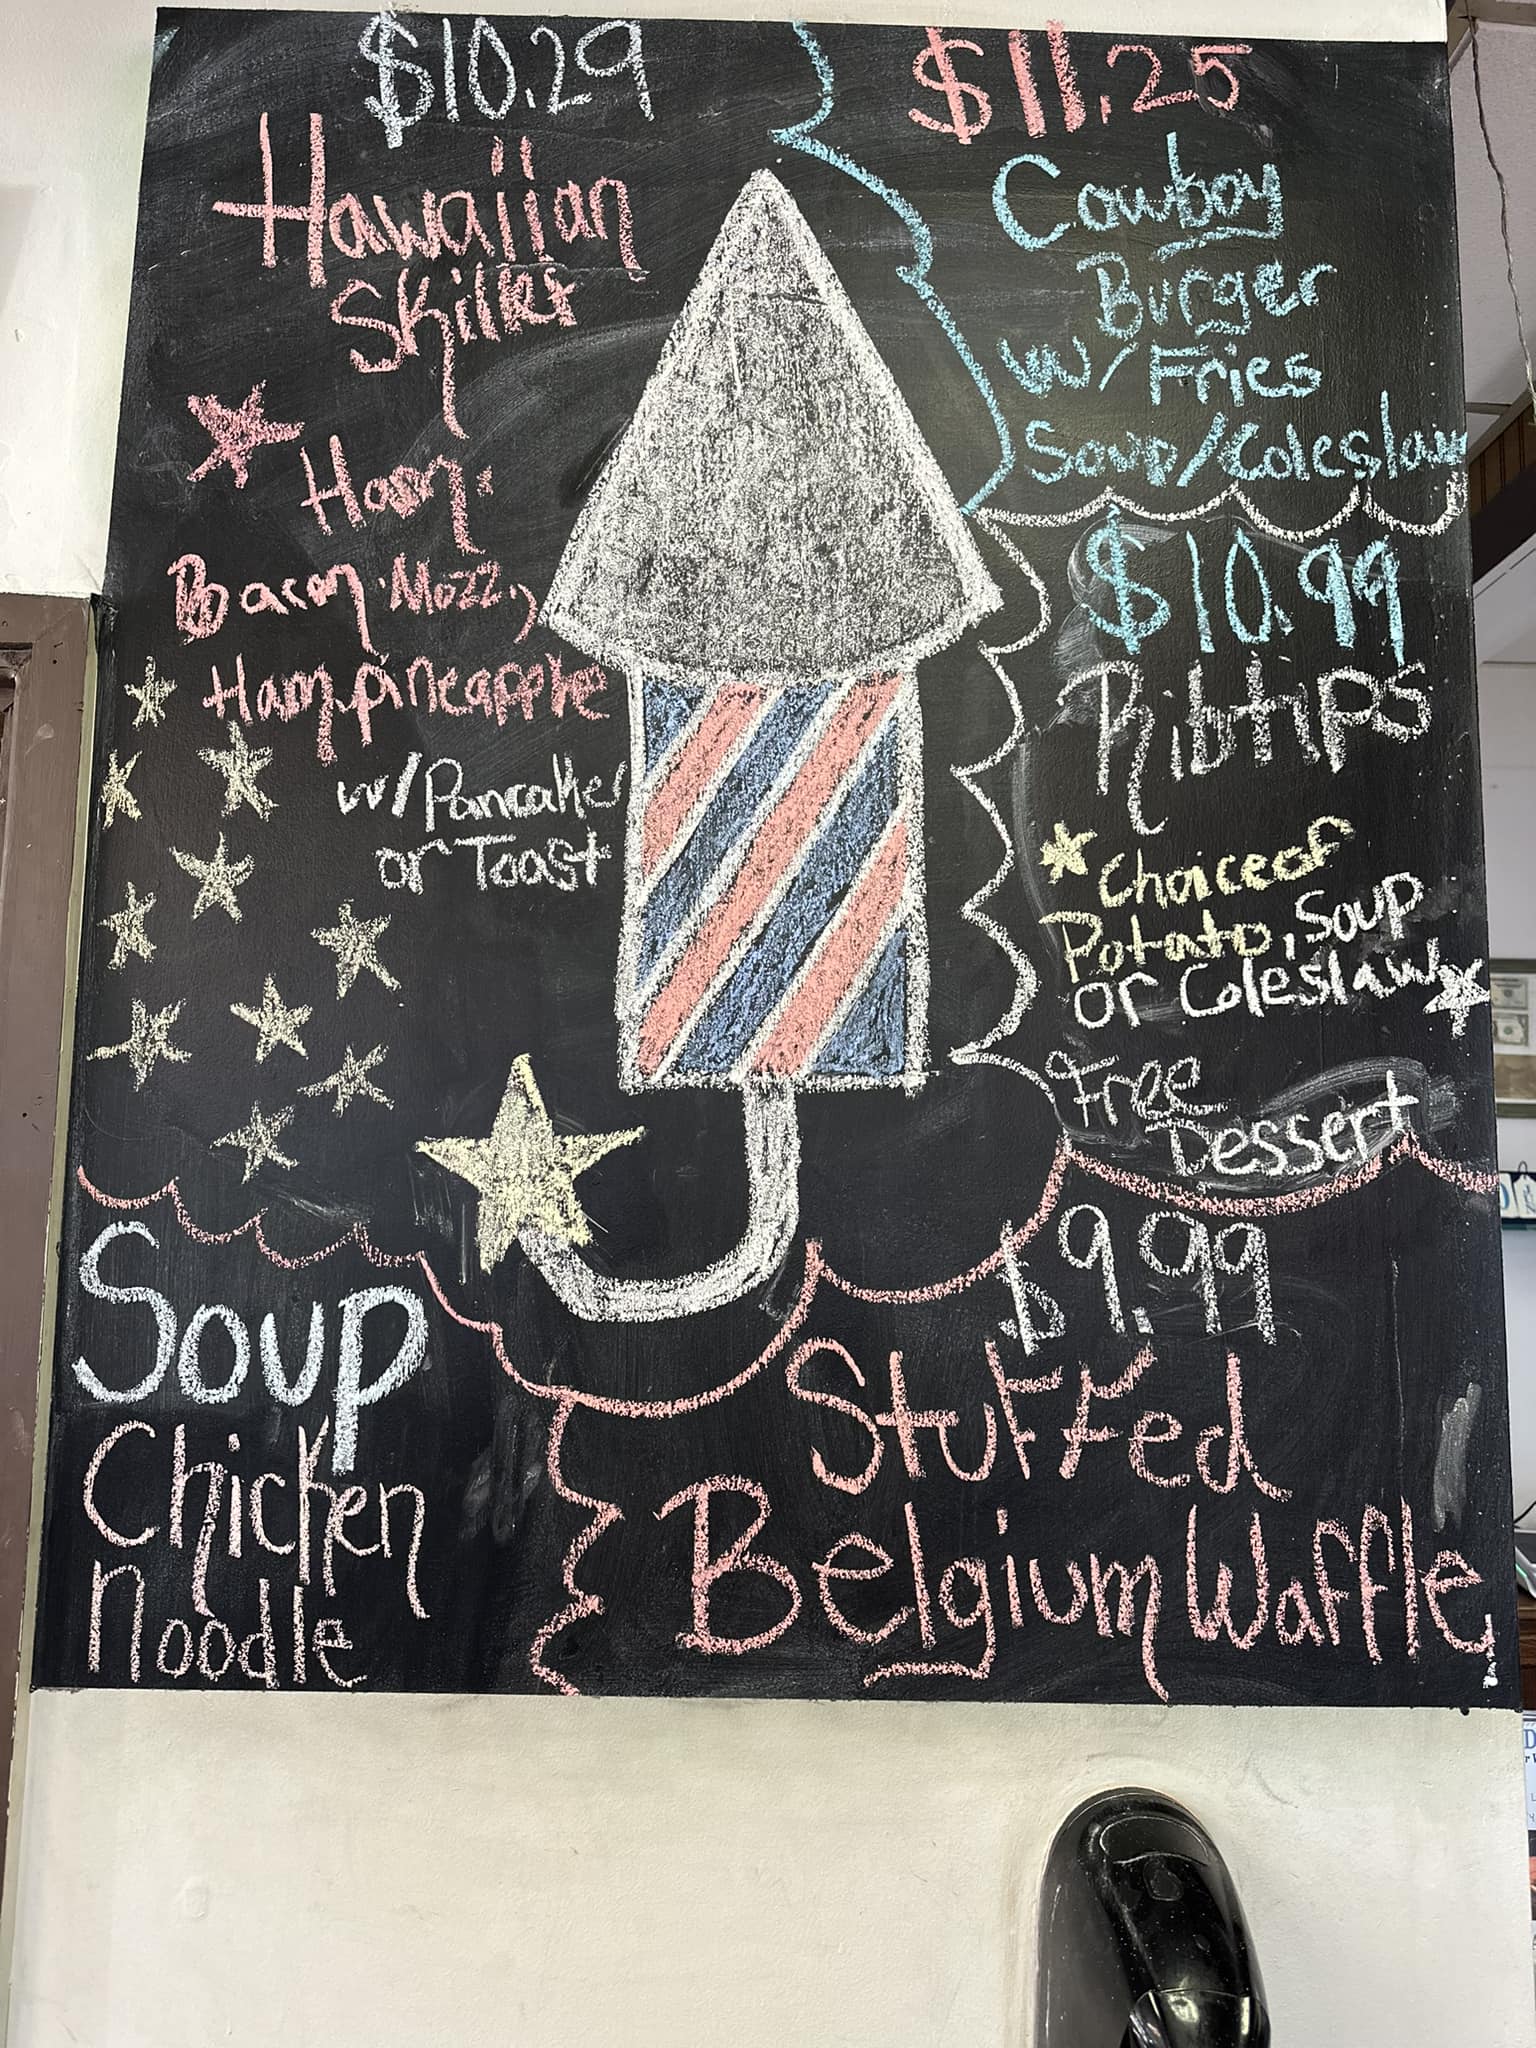 $10.29
Hawaiian
Skillet
Ham.
Bacon. Mozz,
Ham, pineapple
w/Pancake
or Toast
$11.25
Cowboy
Burger
w/ Fries
Soup/Coleslaw
$10.99
Ribtips
Choice of
Potato, Soup
or Coleslaw
Free
Dessert
Soup
Chicken
Noodle
$9.99
Stuffed
Belgium Waffle